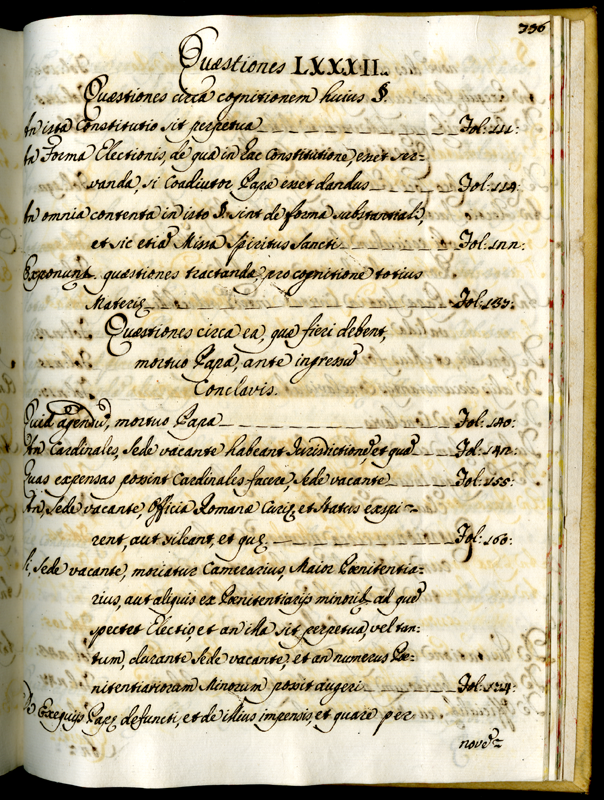 336
Quæstiones LXXXII.
Quæstiones circa cognitionem huius §.
An ista Constitutio sit perpetua Fol: 111:
An Forma Electionis, de qua in hac Constitutione, esset ser-
vanda, si Coadiutor Papæ esset dandus Fol: 114:
An omnia contenta in isto §. sint de forma substantiali,
et sic etiã Missa Spiritus Sancti Fol: 122:
Exponunt. quæstiones tractandæ, pro cognitione totius
Materię Fol: 137:
Quæstiones circa ea, quæ fieri debent,
mortuo Papa, ante ingressũ
Conclavis.
Quid agendũ, mortuo Papa Fol: 140:
An Cardinales, Sede vacante habeant Jurisdictionẽ, et quã Fol: 142:
Quas expensas possint Cardinales facere, Sede vacante Fol: 155:
An, Sede vacante, Officia Romanæ Curię, et Status expi-
rent, aut sileant, et quę Fol: 160:
Si, Sede vacante, moriatur Camerarius, Maior Pœnitentia-
rius, aut aliquis ex Pœnitentiarijs minorib. ad quẽ
spectet Electio, et an illa sit perpetua, vel tan-
tum, durante Sede vacante, et an numerus Pœ-
nitentiariorum Minorum possit augeri Fol: 174:
De Exequijs Papę defuncti, et de illius impensis, et quare per
novẽ